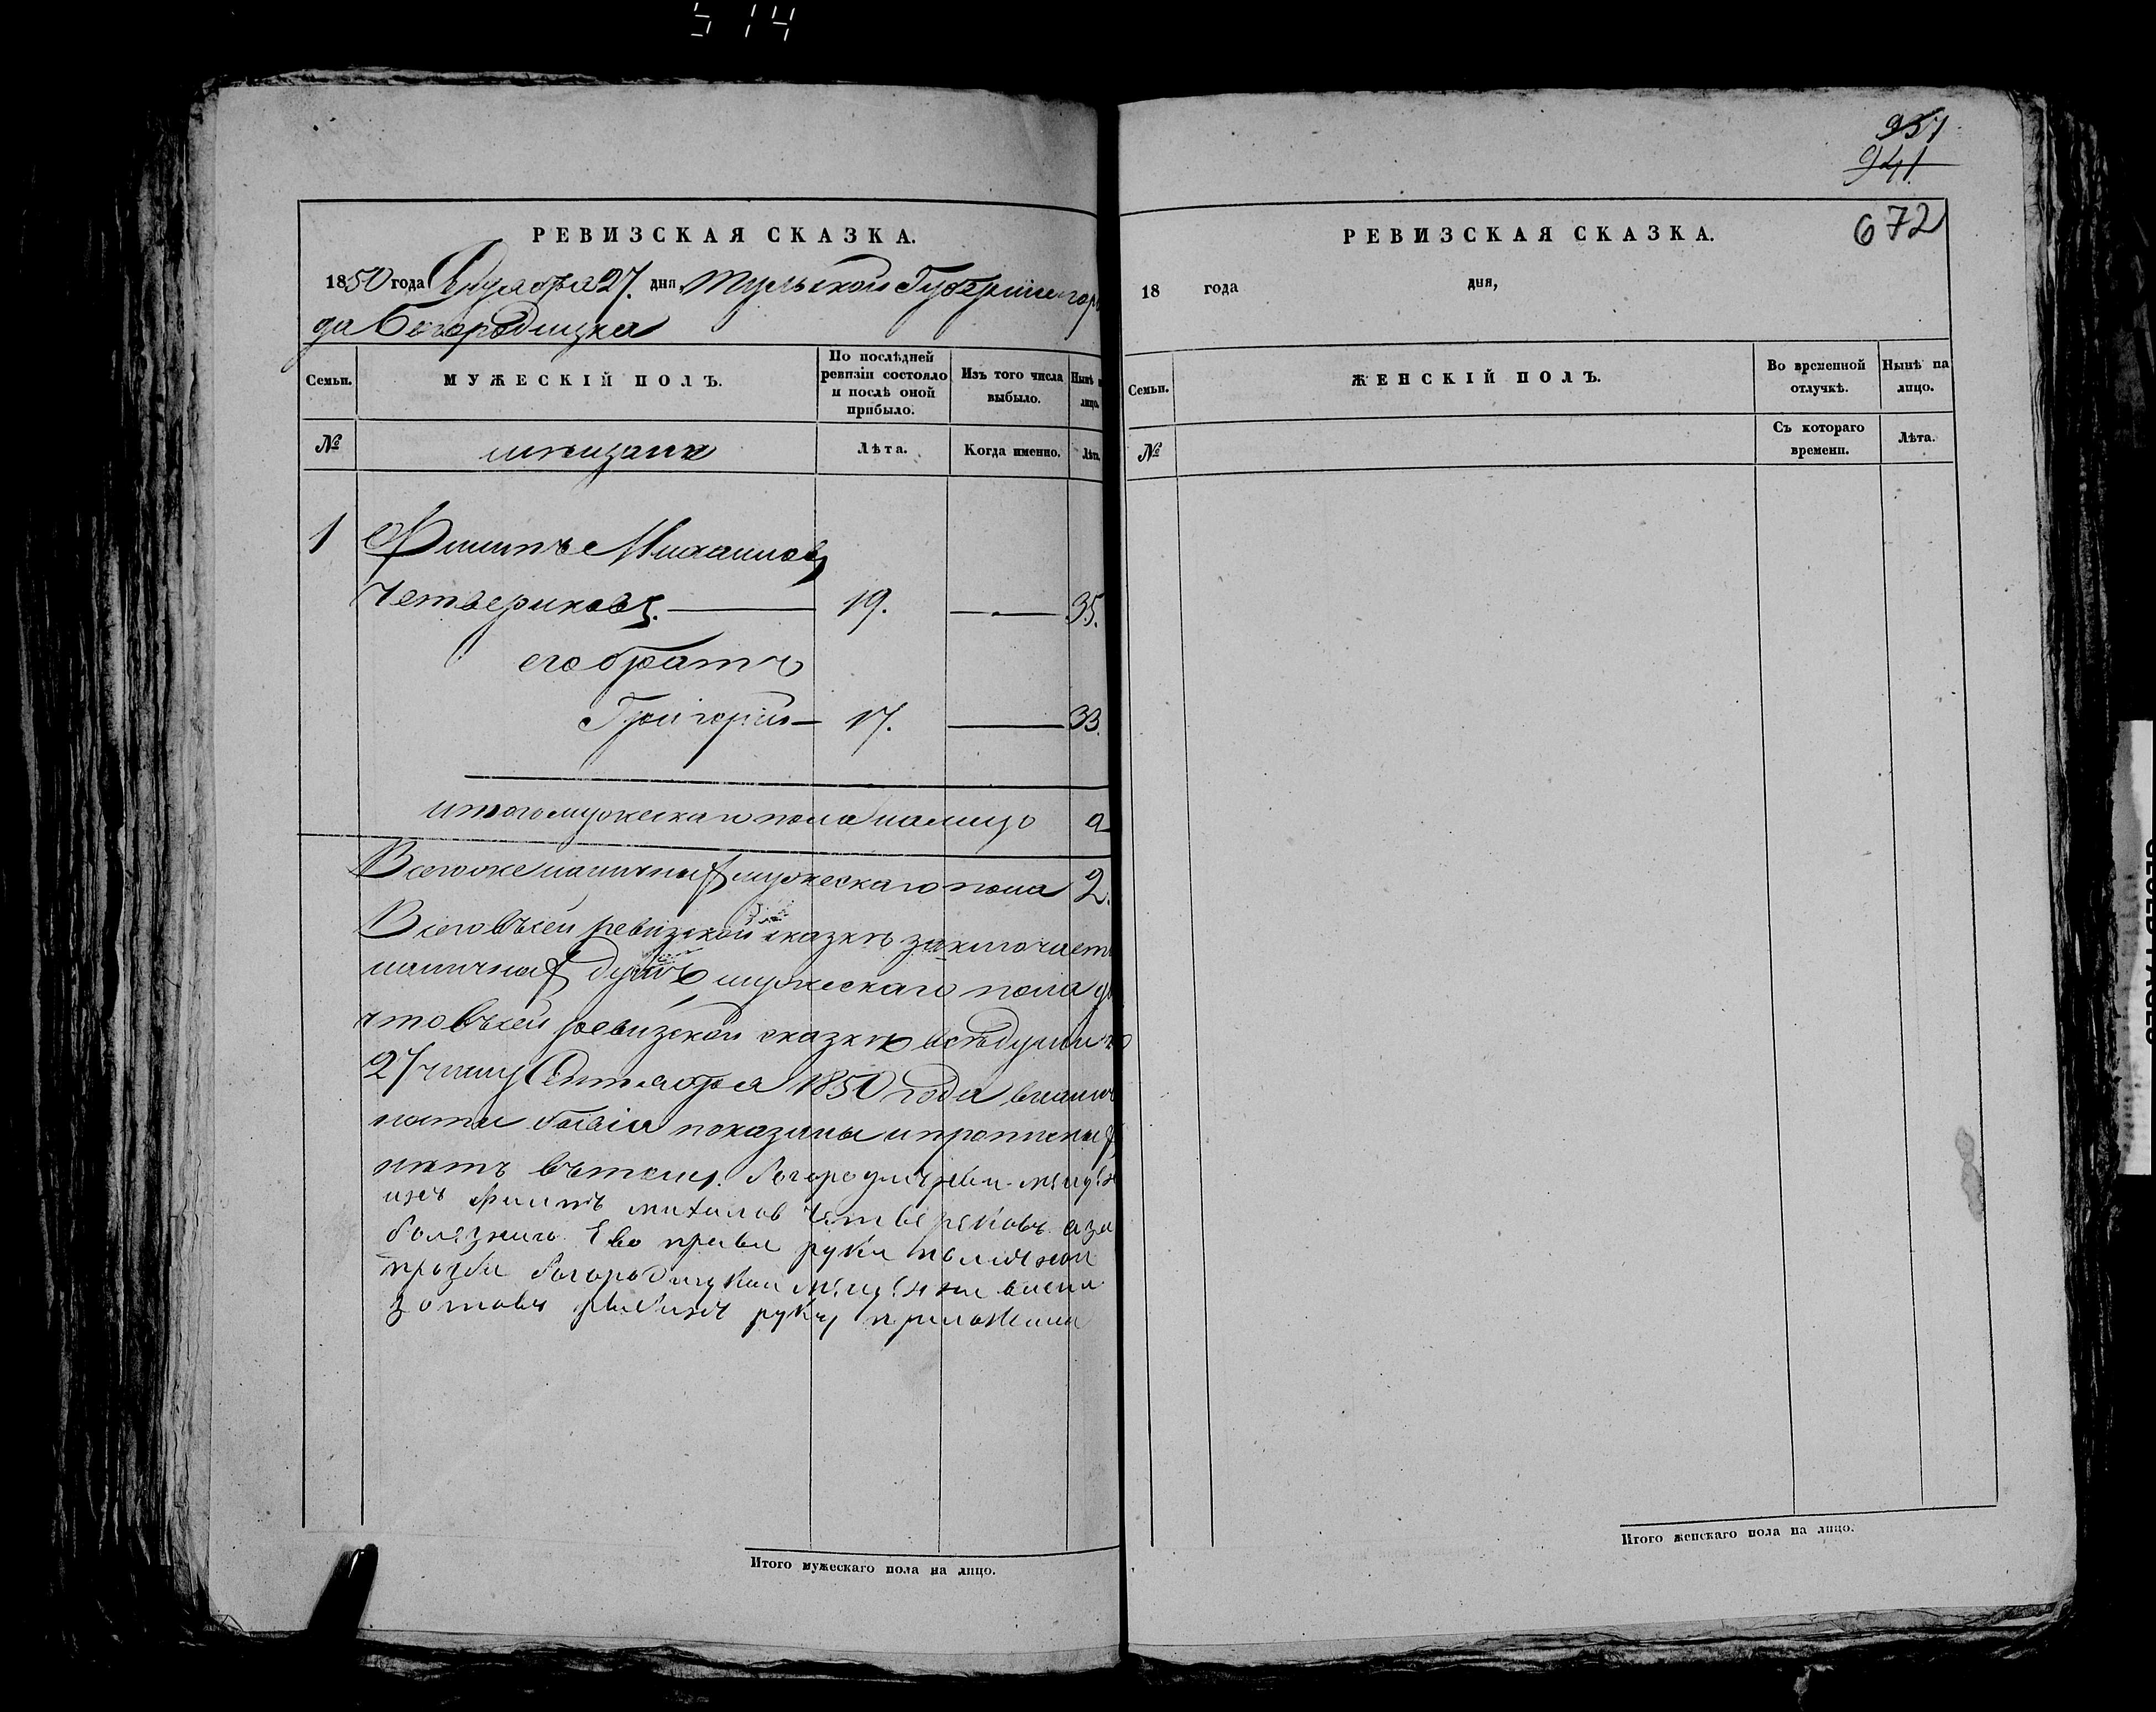 514
РЕВИЗСКАЯ СКАЗКА.
1850 года Сентября 27. дня, Тульской Губернии горо
да Богородицка
Семьи.
МУЖЕСКІЙ ПОЛЪ.
По послѣдней ревизіи состояло и послѣ оной прибыло.
Изъ того числа выбыло.
Нынѣ н лицо.
№
мѣщанѣ
Лѣта.
Когда именно.
Лѣта.
1 Филипъ Михаиловъ
Четвериковъ. 19. 35.
его братъ
Григорій 17. 33.
итого мужескаго пола налицо 2
Всегоже наличныхъ мужескаго пола 2.
Всего въсей ревизской сказкѣ заключает
наличныхъ душъ мужескаго пола
что въсей ревизской сказкѣ всѣ души по
27 число Сентября 1850 года
показаны и прописныхъ
нѣтъ въ томъ.
ихъ Филипъ михаилов Четвериковъ а за
болезнию Ево правы руки по личнои
прозби богородицкои
Зотовъ руку приложилъ
Итого мужескаго пола на лицо.
951
941
672
РЕВИЗСКАЯ СКАЗКА.
18 года дня,
Семьи.
ЖЕНСКІЙ ПОЛЪ.
Во временной отлучкѣ.
Нынѣ на лицо.
№
Съ котораго времени.
Лѣта.
Итого женскаго пола на лицо.